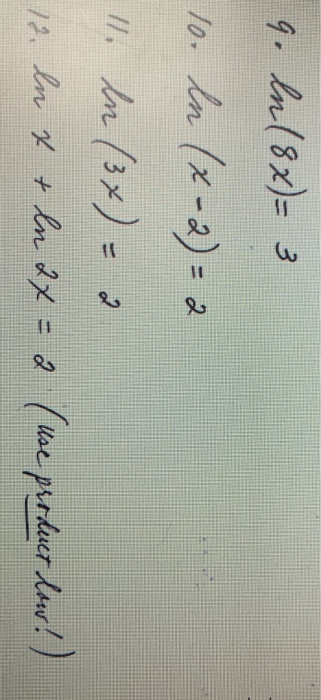 9. ln(8x) = 3
10. ln (x - 2) = 2
11. ln (3x) = 2
12. ln x + ln 2x = 2 (use product law!)